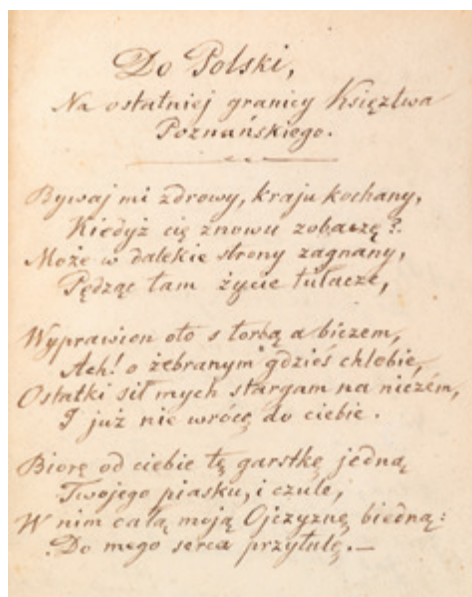 Do Polski,
Na ostatniej granicy Księztwa
Poznańskiego.
Bywaj mi zdrowy, kraju kochany,
Kiedyż cię znowu zobaczę?
Może w dalekie strony zagnany,
Pędząc tam życie tułacze,
Wyprawion oto s torbą a biczem,
Ach! o żebranym gdzieś chlebie,
Ostatki sił mych stargam na niczém,
I już nie wrócę do ciebie.
Biorę od ciebie tę garstkę jedną
Twojego piasku, i czule,
W nim całą moją Ojczyznę biedną:
Do mego serca przytulę.—